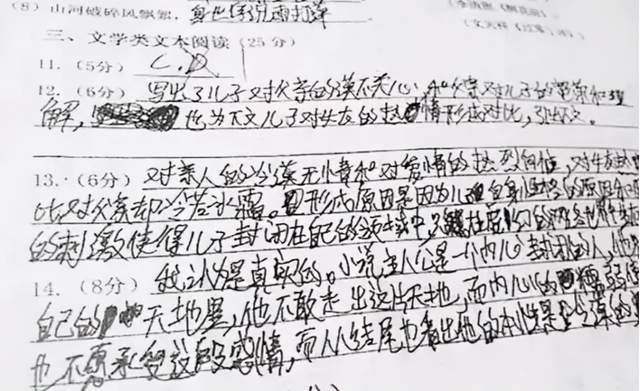 (8) 山河破碎风飘絮,身世浮沉雨打萍
三、文学类文本阅读(25分)
11. (5分) C.D
12. (6分) 写出了儿子对父亲的漠不关心,和父亲对儿子的宽容和理
解,也为下文儿子对女友的热情形成对比,引出下文。
13. (6分) 对亲人的冷漠无情和对爱情的热烈向往,对女友
比对父亲却冷若冰霜。形成原因是因为儿自身性格的原因
的刺激使得儿子封闭在自己的领域中
14. (8分) 我认为是真实的。小说主人公是一个内心封闭的人,他
自己的天地里,他不敢走出这片天地,而内心的
也不愿承受这段感情,而从结尾也看出他的本性是冷漠的